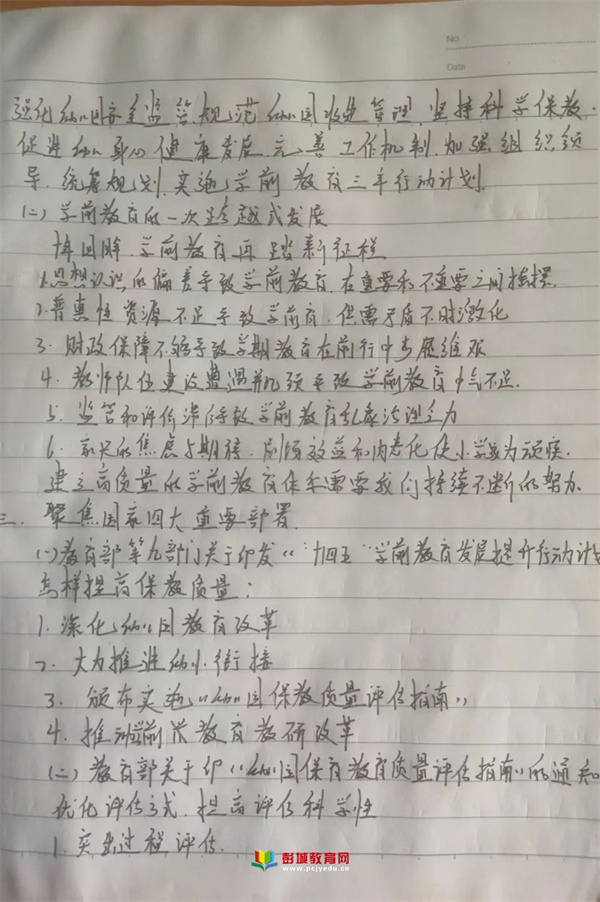 No.
Date
强化幼儿园安全监管规范幼儿园收费管理,坚持科学保教,
促进幼儿身心健康发展,完善工作机制,加强组织领
导,统筹规划,实施学前教育三年行动计划.
(二)学前教育的一次跨越式发展
回眸,学前教育再踏新征程
1.思想认识的偏差导致学前教育,在重要和不重要之间摇摆.
2.普惠性资源不足导致学前育,供需矛盾不时激化
3.财政保障不够导致学期教育在前行中步履维艰
4.教师队伍建设遭遇瓶颈导致学前教育中气不足.
5.监管和评价滞后导致学前教育乱象治理乏力
6.家长的焦虑与期待,剧场效益和内卷化使小学成为顽疾.
建立高质量的学前教育体系需要我们持续不断的努力.
三.聚焦国家四大重要部署.
(一)教育部等九部门关于印发《“十四五”学前教育发展提升行动计
怎样提高保教质量:
1.深化幼儿园教育改革
2.大力推进幼小衔接
3.颁布实施《幼儿园保教质量评估指南》
4.推动学前教育教研改革
(二)教育部关于印《幼儿园保育教育质量评估指南》的通知
优化评估方式,提高评估科学性
1.突出过程评估.
彭城教育网
www.pcjyedu.cn